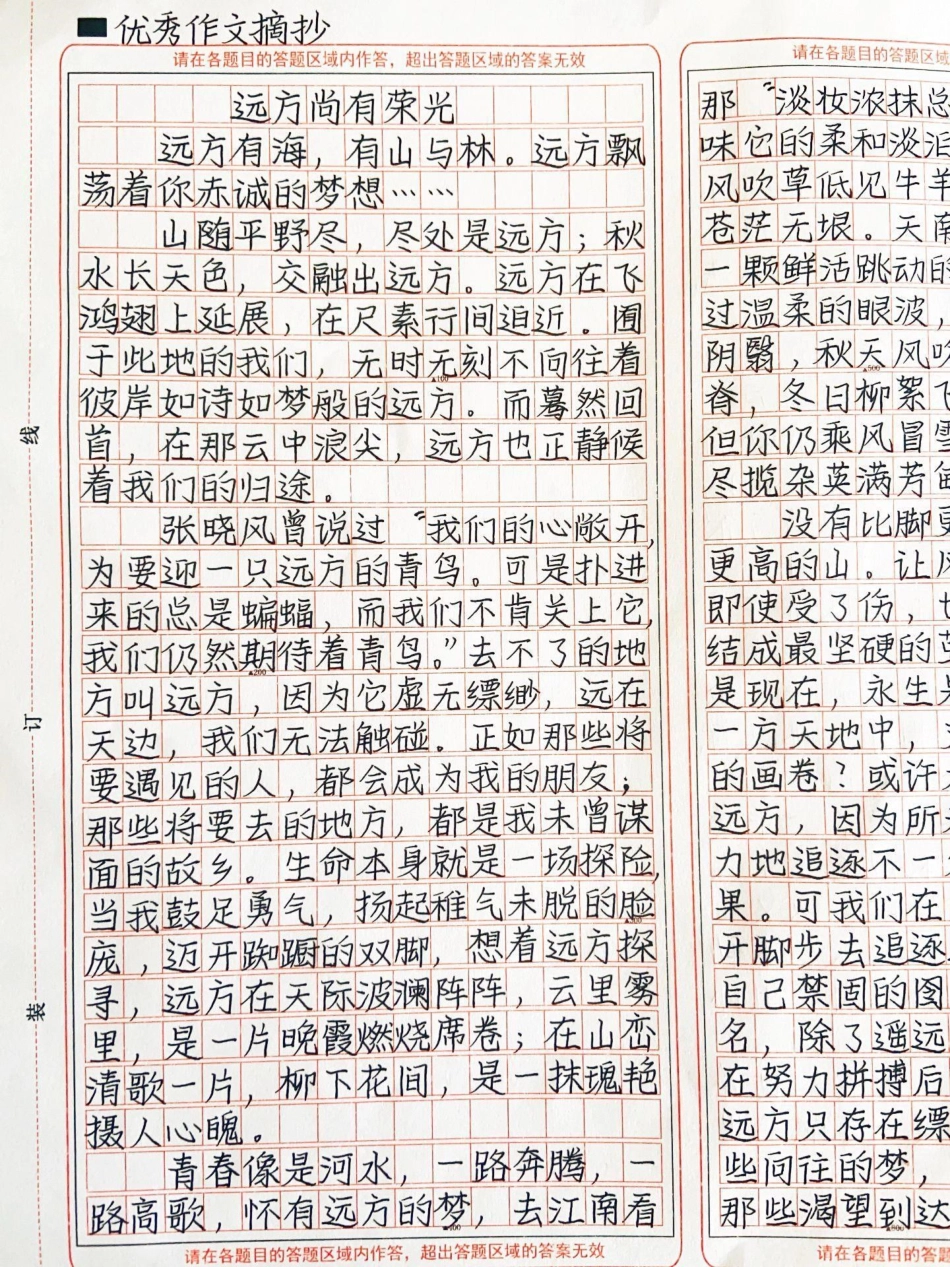 优秀作文摘抄
请在各题目的答题区域内作答，超出答题区域的答案无效
远方尚有荣光
远方有海，有山与林。远方飘
荡着你赤诚的梦想……
山随平野尽，尽处是远方；秋
水长天色，交融出远方。远方在飞
鸿翅上延展，在尺素行间迫近。囿
于此地的我们，无时无刻不向往着
▲100
彼岸如诗如梦般的远方。而蓦然回
首，在那云中浪尖，远方也正静候
着我们的归途。
张晓风曾说过“我们的心敞开，
为要迎一只远方的青鸟。可是扑进
来的总是蝙蝠，而我们不肯关上它，
我们仍然期待着青鸟。”去不了的地
▲200
方叫远方，因为它虚无缥缈，远在
天边，我们无法触碰。正如那些将
要遇见的人，都会成为我的朋友；
那些将要去的地方，都是我未曾谋
面的故乡。生命本身就是一场探险，
当我鼓足勇气，扬起稚气未脱的脸
▲300
庞，迈开踟蹰的双脚，想着远方探
寻，远方在天际波澜阵阵，云里雾
里，是一片晚霞燃烧席卷；在山峦
清歌一片，柳下花间，是一抹瑰艳
摄人心魄。
青春像是河水，一路奔腾，一
路高歌，怀有远方的梦，去江南看
▲400
请在各题目的答题区域内作答，超出答题区域的答案无效
请在各题目的答题区域
那“淡妆浓抹总
味它的柔和淡泊
风吹草低见牛羊
苍茫无垠。天南
一颗鲜活跳动的
过温柔的眼波，
阴翳，秋天风吹
▲500
脊，冬日柳絮飞
但你仍乘风冒雪
尽揽杂英满芳甸
没有比脚更
更高的山。让风
即使受了伤，
结成最坚硬的
是现在，永生
一方天地中，
的画卷？或许
远方，因为所
力地追逐不一
果。可我们在
开脚步去追逐
自己禁固的图
名，除了遥远
在努力拼搏后
远方只存在缥
些向往的梦，
那些渴望到达
▲800
请在各题目的答题
线
订
装